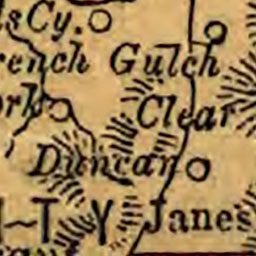 sCy.
rench Gulch
ork Clear
Duncan
-TY Janes